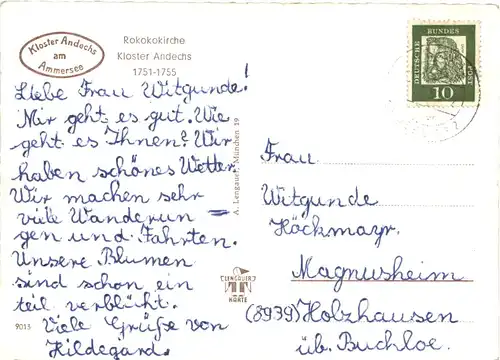 Kloster Andechs
am
Ammersee
Rokokokirche
Kloster Andechs
1751-1755
Liebe Frau Witgunde!
Mir geht es gut. Wie
geht es Ihnen? Wir
haben schönes Wetter.
Wir machen sehr
viele Wanderun =
gen und Fahrten.
Unsere Blumen
sind schon ein
teil verblüht.
Viele Grüße von
Hildegard.
9015
A. Lengauer, München 59
LENGAUER
KARTE
DEUTSCHE
BUNDES
POST
10
Frau
Witgunde
Höckmayr.
Magnusheim
(8939) Holzhausen
üb. Buchloe.